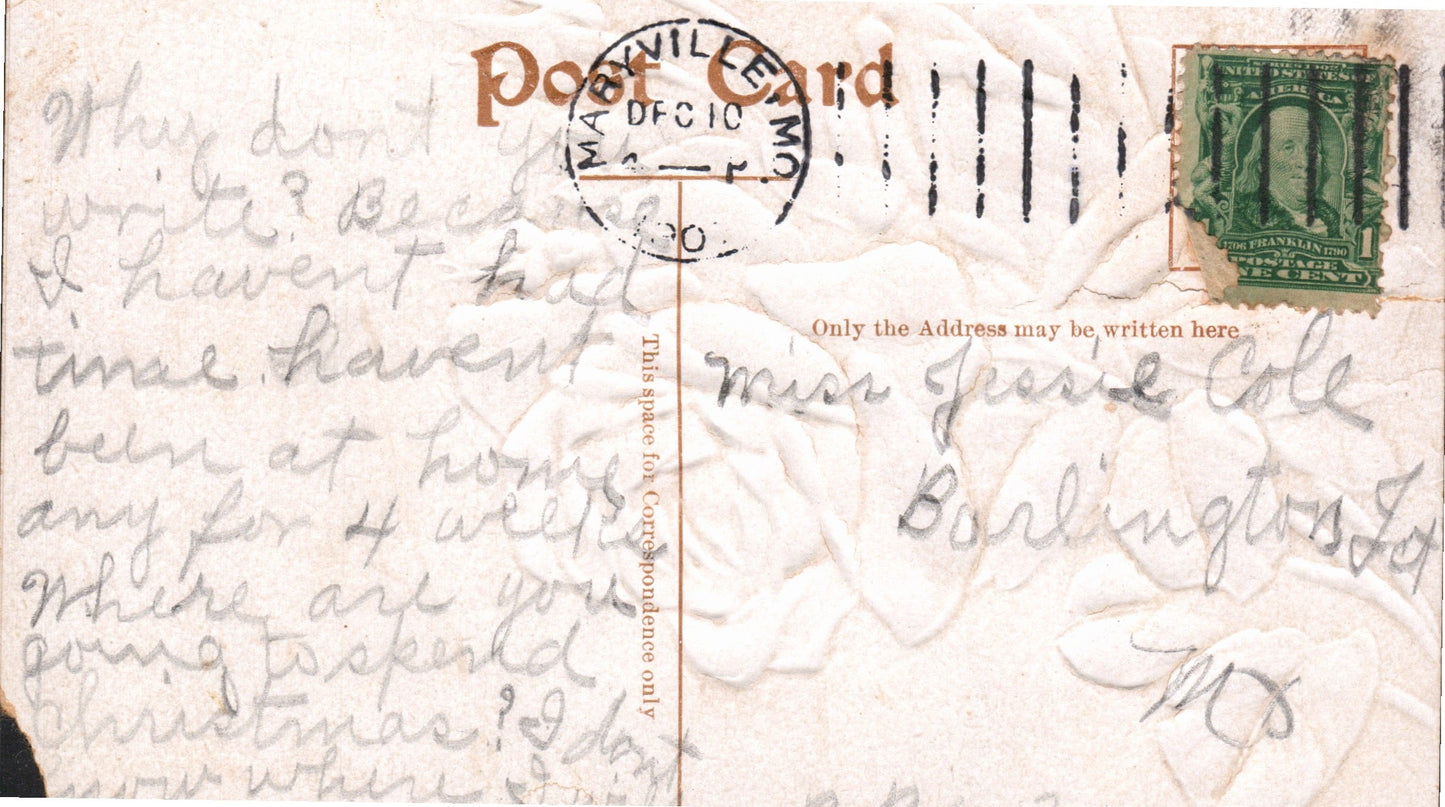 Post Card
MARYVILLE, MO.
DEC 10
190
SERIES 1902
UNITED STATES
OF AMERICA
1706 FRANKLIN 1790
1
POSTAGE
ONE CENT
Why don't you
write? Because
I havent had
time. havent
been at home
any for 4 weeks
Where are you
going to spend
Christmas? I dont
know where I
This space for Correspondence only
Only the Address may be written here
Miss Jessie Cole
Burlington Jct
Mo